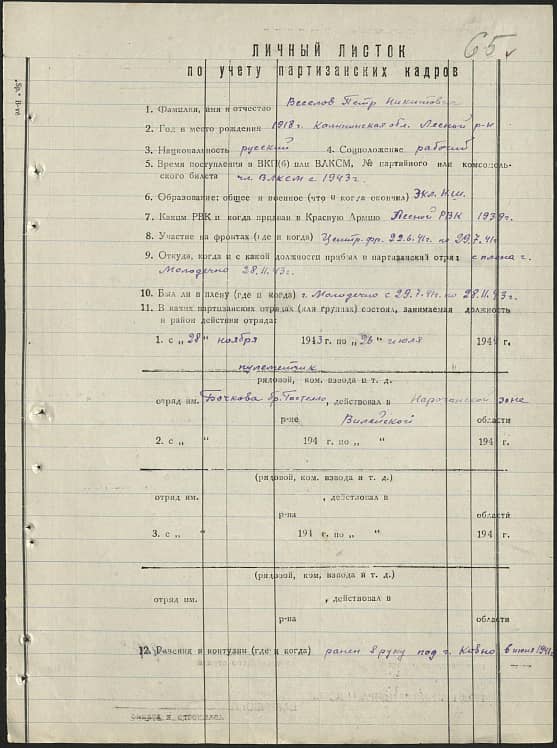 65
ЛИЧНЫЙ ЛИСТОК
по учету партизанских кадров
1. Фамилия, имя и отчество Веселов Петр Никитович
2. Год и место рождения 1918 г. Калининская обл. Лесной р-н
3. Национальность русский 4. Соцположение рабочий
5. Время поступления в ВКП(б) или ВЛКСМ, № партийного или комсомоль-
ского билета чл. ВЛКСМ с 1943 г.
6. Образование: общее и военное (что и когда окончил) 3 кл. Н.Ш.
7. Каким РВК и когда призван в Красную Армию Лесной РВК 1939 г.
8. Участие на фронтах (где и когда) Центр. фр. 22.6.41г. по 29.7.41г.
9. Откуда, когда и с какой должности прибыл в партизанский отряд с плена г.
Молодечно 28.11.43г.
10. Был ли в плену (где и когда) г. Молодечно с 29.7.41г. по 28.11.43г.
11. В каких партизанских отрядах (или группах) состоял, занимаемая должность
и район действия отряда:
1. с „28" ноября 1943 г. по „26" июля 1944 г.
пулеметчик
рядовой, ком. взвода и т. д.
отряд им. Бочкова бр. Гастелло, действовал в Нарочанской зоне
р-не Вилейской области
2. с „ " 194 г. по „ " 194 г.
(рядовой, ком. взвода и т. д.)
отряд им. , действовал в
р-на области
3. с „ " 194 г. по „ " 194 г.
(рядовой, ком, взвода и т. д.)
отряд им. , действовал в
р-на области
12. Ранения и контузии (где и когда) ранен в руку под г. Ковно в июне 1941г.